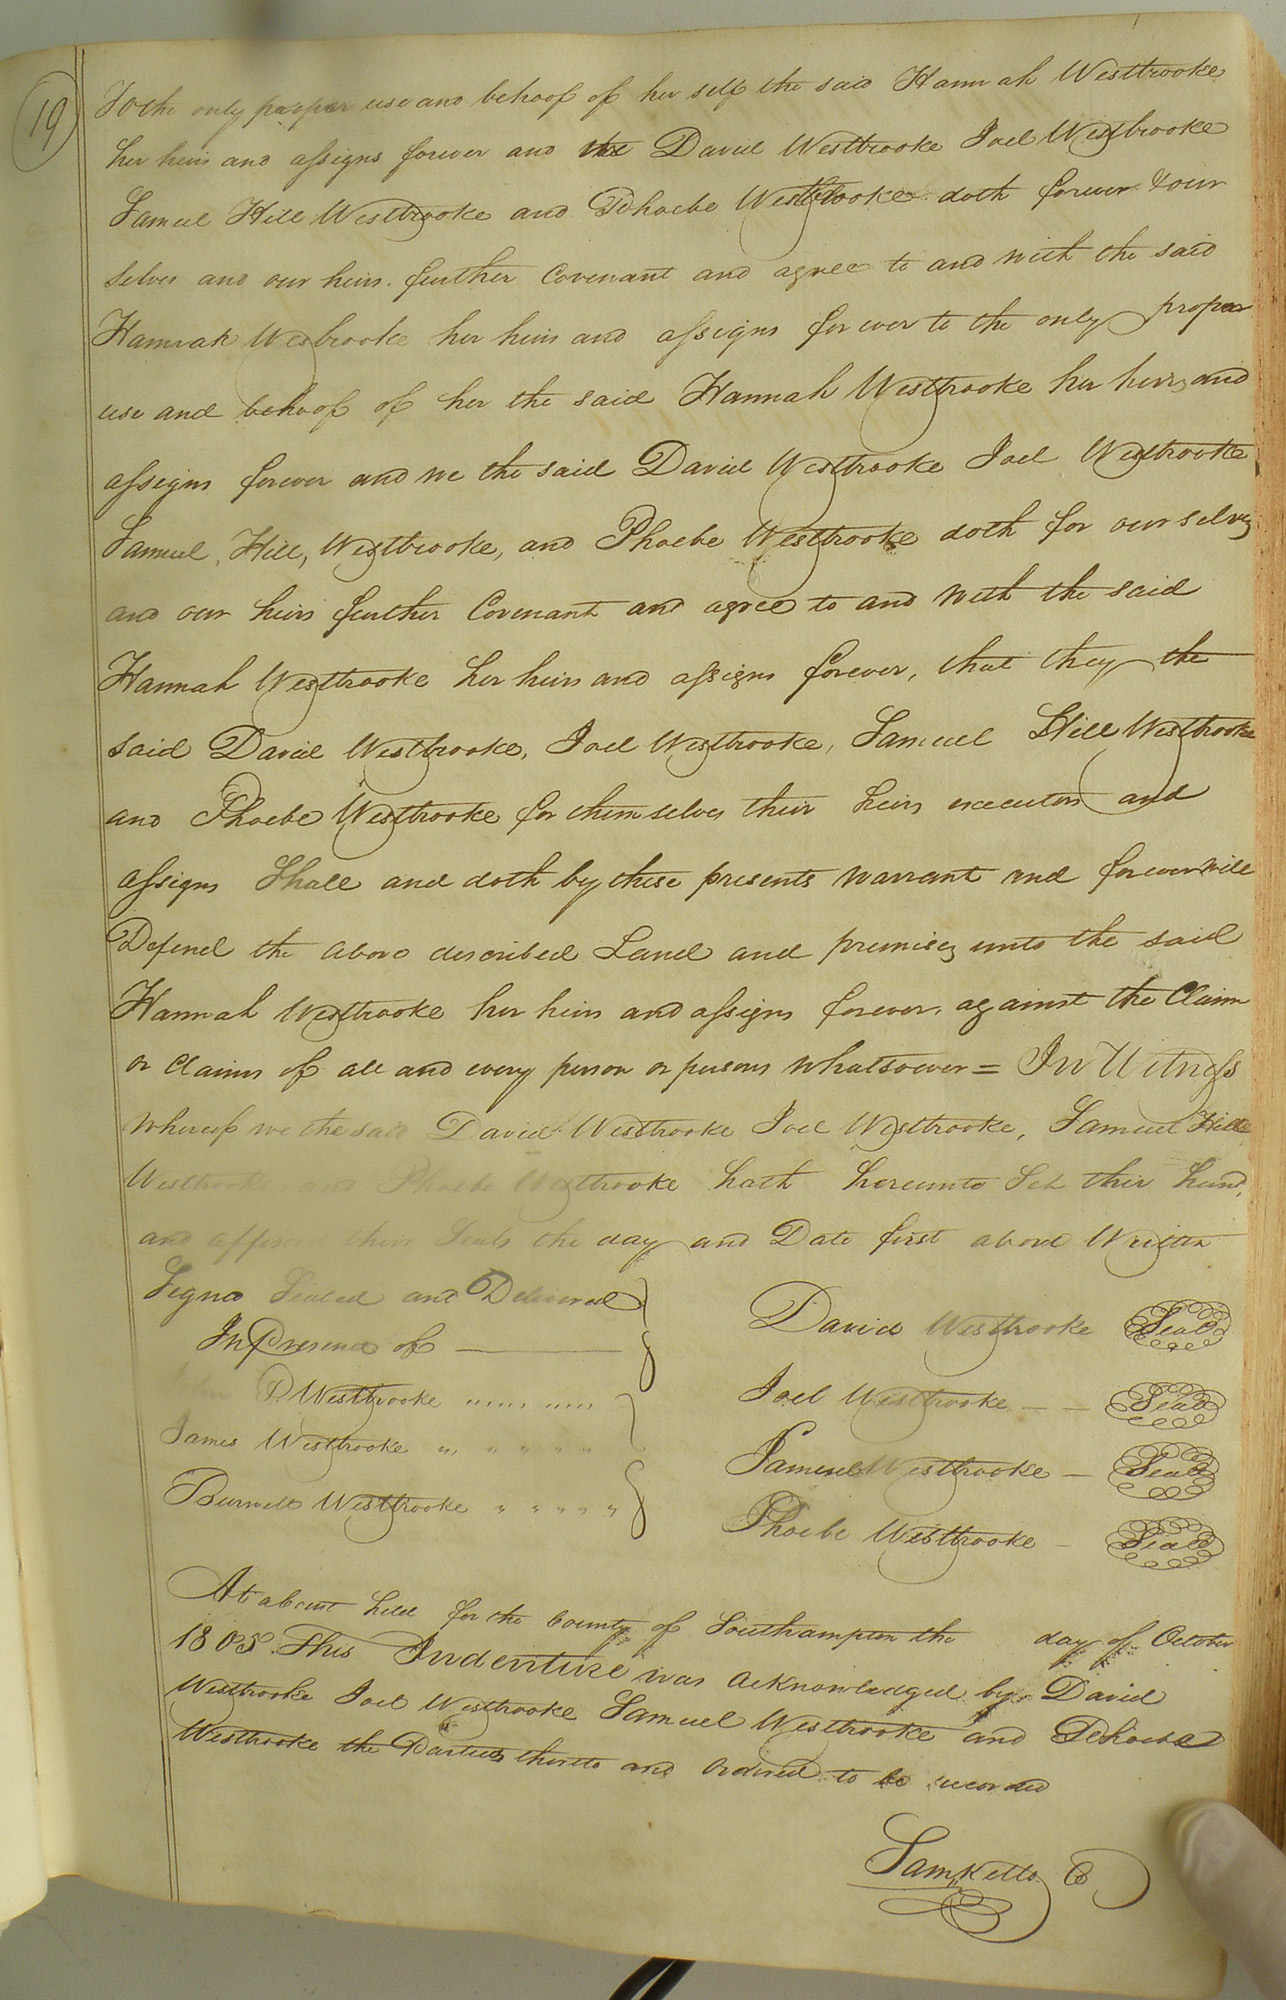 19
To the only proper use and behoof of her self the said Hannah Westbrooke
her heirs and assigns forever and the David Westbrooke Joel Westbrooke
Samuel Hill Westbrooke and Phoebe Westbrooke doth forever & our
selves and our heirs further Covenant and agree to and with the said
Hannah Wesbrooke her heirs and assigns forever to the only proper
use and behoof of her the said Hannah Westbrooke her heirs and
assigns forever and we the said David Westbrooke Joel Westbrooke
Samuel, Hill, Westbrooke, and Phoebe Westbrooke doth for our selves
and our heirs further Covenant and agree to and with the said
Hannah Westbrooke her heirs and assigns forever, that they the
said David Westbrooke, Joel Westbrooke, Samuel Hill Westbrooke
and Phoebe Westbrooke for themselves their heirs executors and
assigns Shall and doth by these presents warrant and forever will
Defend the above described Land and premises unto the said
Hannah Westbrooke her heirs and assigns forever, against the Claim
or Claims of all and every person or persons whatsoever = In Witness
whereof we the said David Westbrooke Joel Westbrooke, Samuel Hill
Westbrooke and Phoebe Westbrooke hath hereunto Set their hand,
and affixed their Seals the day and Date first above Written
Signd Sealed and Delivered
In Presence of
P. Westbrooke " " " " " "
James Westbrooke " " " " "
Burwell Westbrooke " " " " "
David Westbrooke Seal
Joel Westbrooke - - Seal
Samuel Westbrooke - Seal
Phoebe Westbrooke - Seal
At a Court held for the County of Southampton the day of October
1805. This Indenture was acknowledged by David
Westbrooke Joel Westbrooke Samuel Westbrooke and Phoebe
Westbrooke the Parties thereto and Ordered to be recorded
Sam Kello C